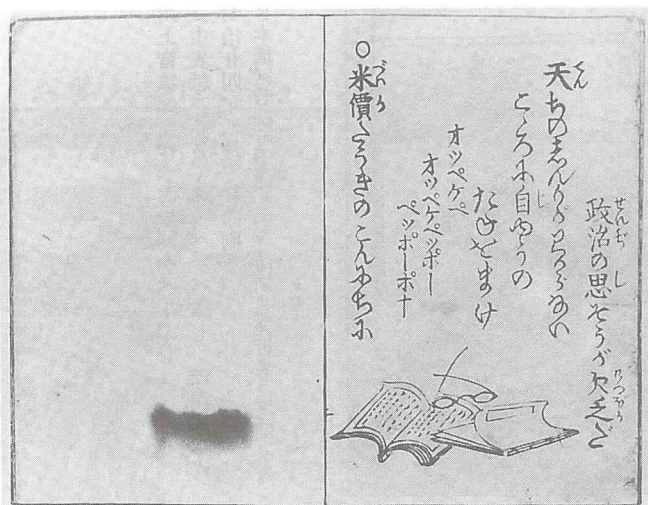 政治の思そうが欠乏だ
天ちの志んりがわからない
こゝろに自ゆうの
たねをまけ
オツペケペ
オツペケペツポー
ペツポーポ
〇米價たうきのこんにちに